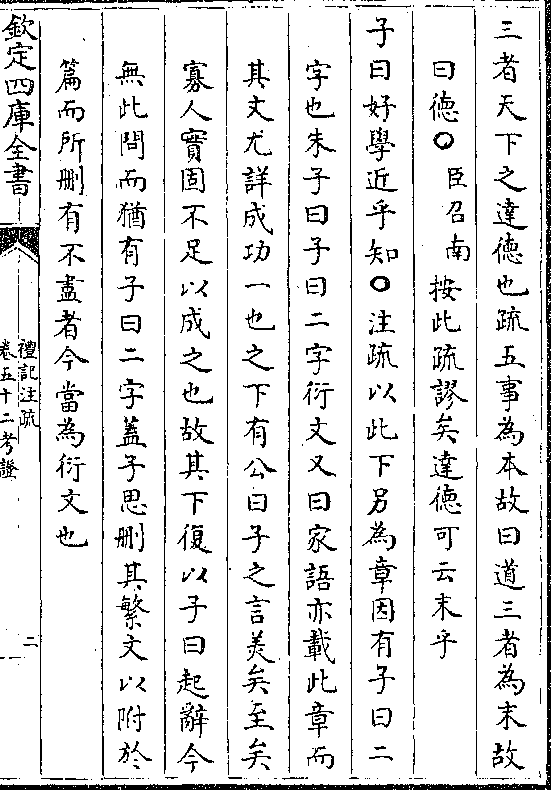 三者天下之達德也疏五事為本故曰道三者為末故
曰德○臣召南按此疏謬矣達德可云末乎
子曰好學近乎知○注疏以此下另為章因有子曰二
字也朱子曰子曰二字衍文又曰家語亦載此章而
其文尤詳成功一也之下有公曰子之言美矣至矣
寡人實固不足以成之也故其下復以子曰起辭今
無此問而猶有子曰二字蓋子思刪其繁文以附於
篇而所刪有不盡者今當為衍文也
欽定四庫全書
禮記注疏
卷五十二考證
二